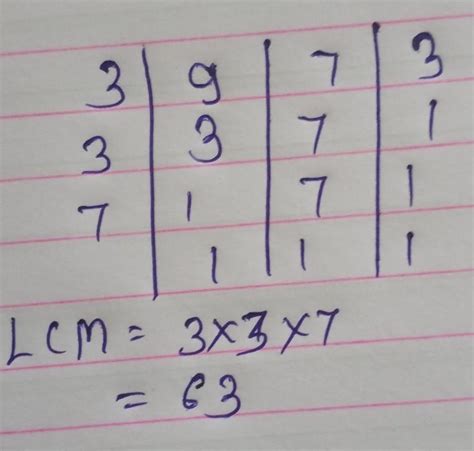 3 | 9 | 7 | 3
3 | 3 | 7 | 1
7 | 1 | 7 | 1
| 1 | 1 | 1
LCM = 3×3×7
= 63